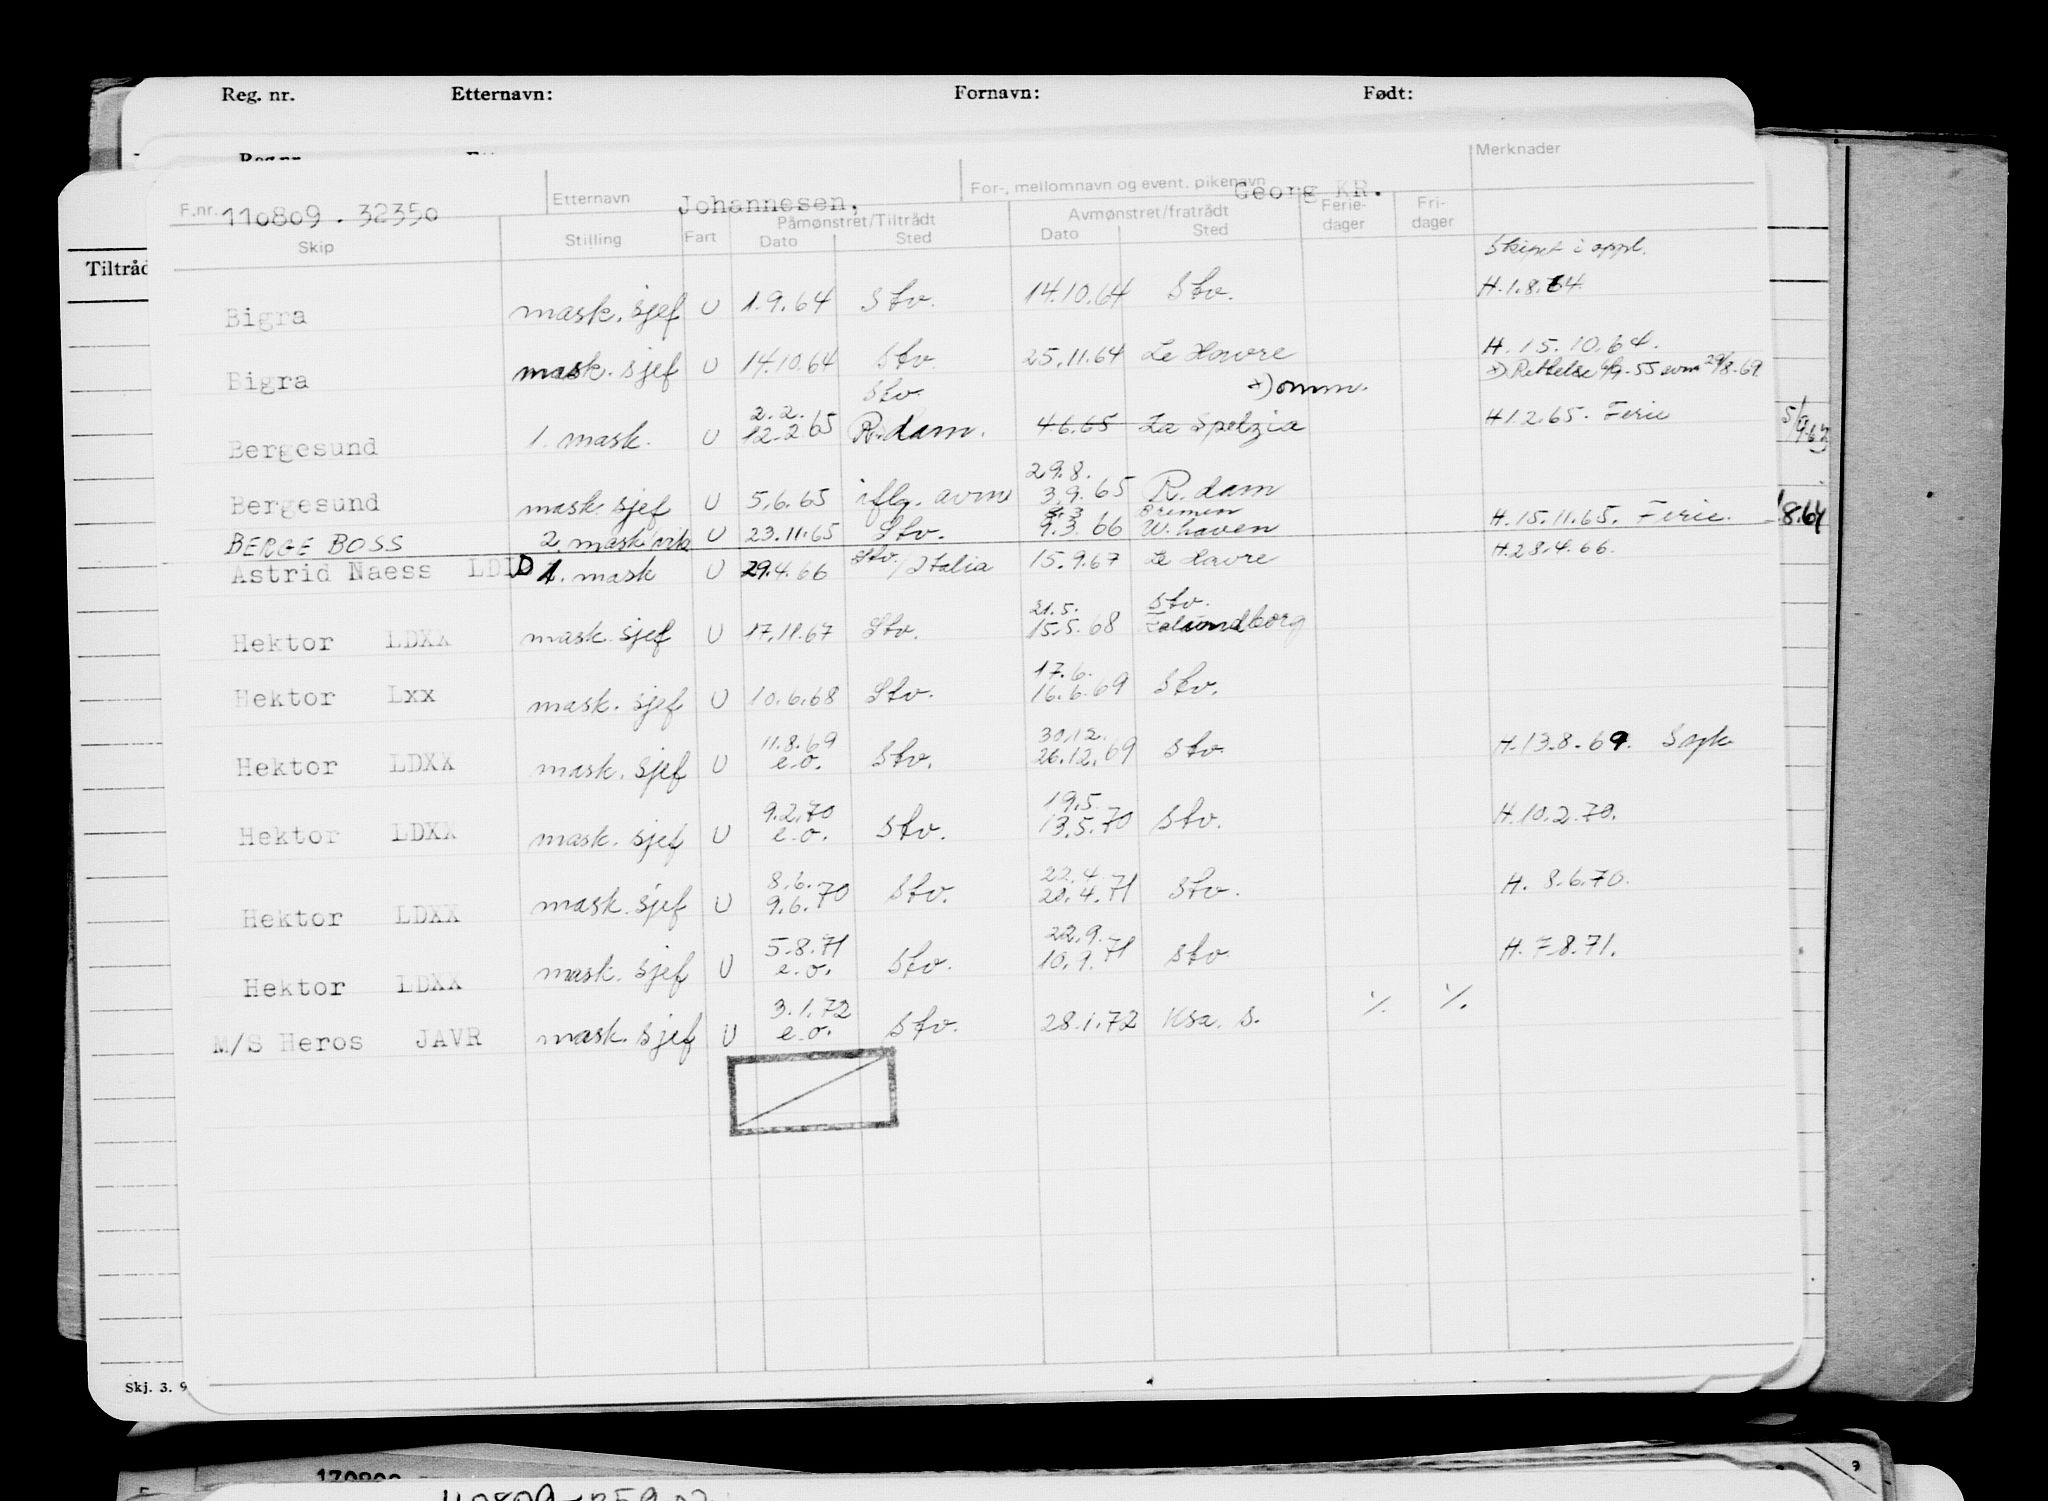 Reg. nr. Etternavn: Fornavn: Født:
Merknader
F.nr. 110809 . 32350 Etternavn Johannesen, For-, mellomnavn og event. pikenavn Georg KR.
Skip Stilling Fart Påmønstret/Tiltrådt Dato Sted Avmønstret/fratrådt Dato Sted Ferie-dager Fri-dager
Tiltråd
Skipet i oppl.
Bigra mask. sjef U 1.9.64 Stv. 14.10.64 Stv. H.1.8.64
Bigra mask. sjef U 14.10.64 Stv. 25.11.64 Le Havre H. 15.10.64.
Stv. x) omm.
2.2.
Bergesund 1. mask. U 12.2.65 R.dam. 4.6.65 La Spetzia H1.2.65. Ferie
29.8.
Bergesund mask. sjef U 5.6.65 iflg. avm 3.9.65 R.dam
Bremen
BERGE BOSS 2. mask vik U 23.11.65 Stv. 9.3.66 W.haven H.15.11.65. Ferie.
Astrid Naess 1. mask U 29.4.66 Stv./Italia 15.9.67 Le Havre H.28.4.66.
21.5. Stv.
Hektor LDXX mask. sjef U 17.11.67 Stv. 15.5.68
17.6.
Hektor Lxx mask. sjef U 10.6.68 Stv. 16.6.69 Stv.
11.8.69 30.12.
Hektor LDXX mask. sjef U e.o. Stv. 26.12.69 Stv. H.13.8.69. Syk
9.2.70 19.5.
Hektor LDXX mask. sjef U e.o. Stv. 13.5.70 Stv. H.10.2.70.
8.6. 22.4.
Hektor LDXX mask. sjef U 9.6.70 Stv. 20.4.71 Stv. H. 8.6.70.
5.8.71 22.9.
Hektor LDXX mask. sjef U e.o. Stv. 10.9.71 Stv. H. 7.8.71.
3.1.72
M/S Heros JAVR mask. sjef U e.o. Stv. 28.1.72 Ksa. S. ·/. ·/.
Skj. 3. 9